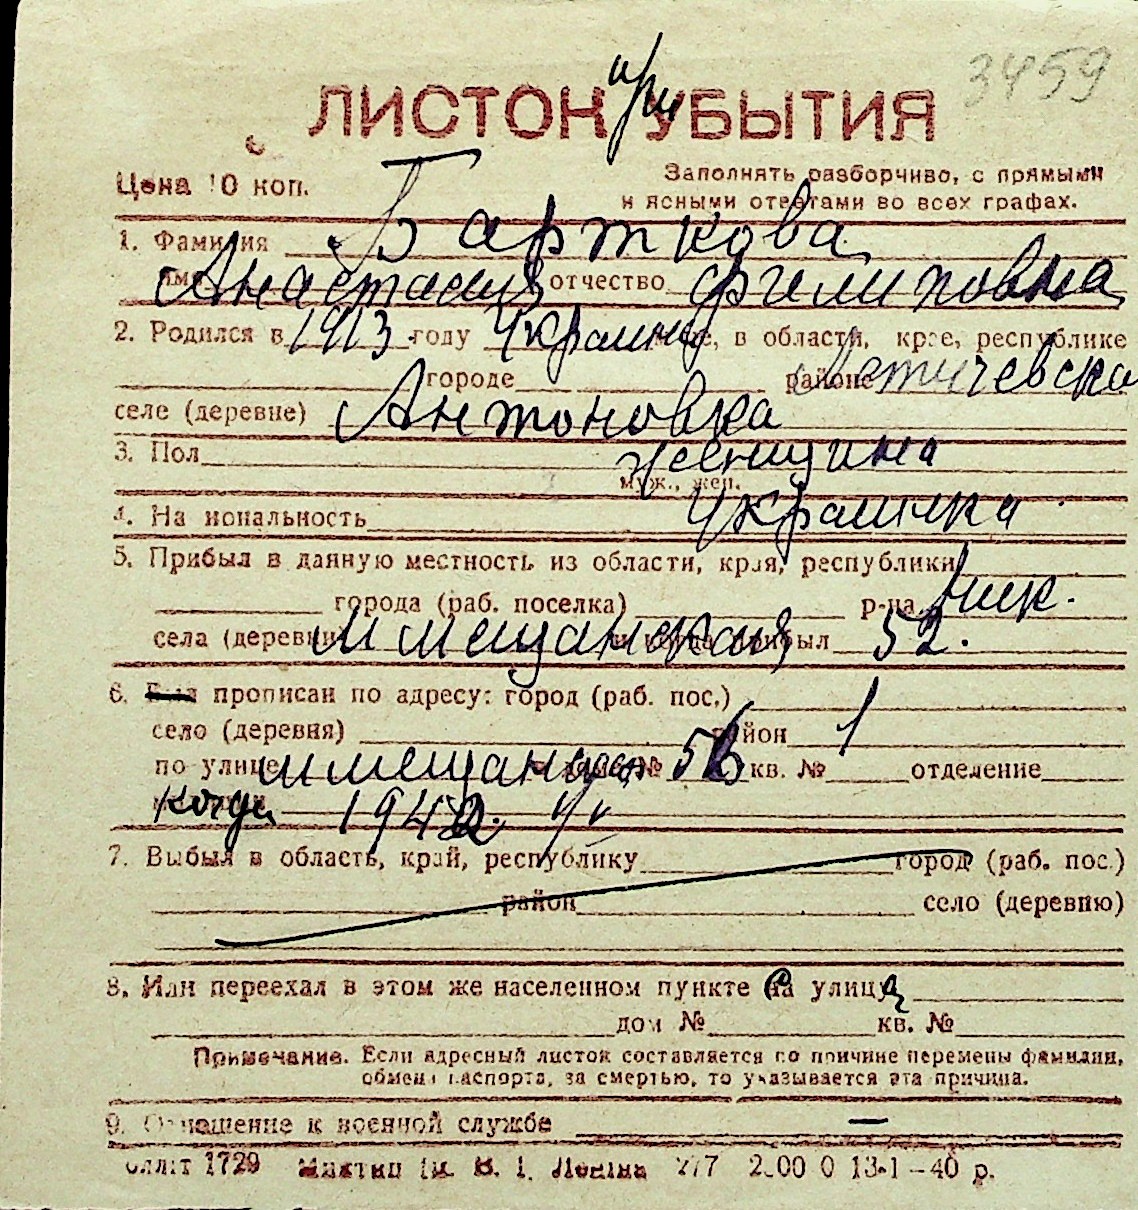 3459
ЛИСТОК УБЫТИЯ
при
Цена 10 коп.
Заполнять разборчиво, с прямыми
и ясными ответами во всех графах.
1. Фамилия Барткова
Анастасия отчество Филиповна
2. Родился в 1913 году Украина, в области, крае, республике
городе районе Летичевска
селе (деревне) Антоновка
3. Пол женщина
муж., жен.
4. Национальность Украинка
5. Прибыл в данную местность из области, края, республики
города (раб. поселка) р-на
села (деревни) прибыл 52.
6. прописан по адресу: город (раб. пос.)
село (деревня) район 1
по улице № кв. № отделение
Когда 1942.
7. Выбыл в область, край, республику город (раб. пос.)
район село (деревню)
8. Или переехал в этом же населенном пункте с улицы
дом № кв. №
Примечание. Если адресный листок составляется по причине перемены фамилии,
обмена паспорта, за смертью, то указывается эта причина.
9. Отношение к военной службе —
1729 им. В. И. Ленина 13-1—40 р.